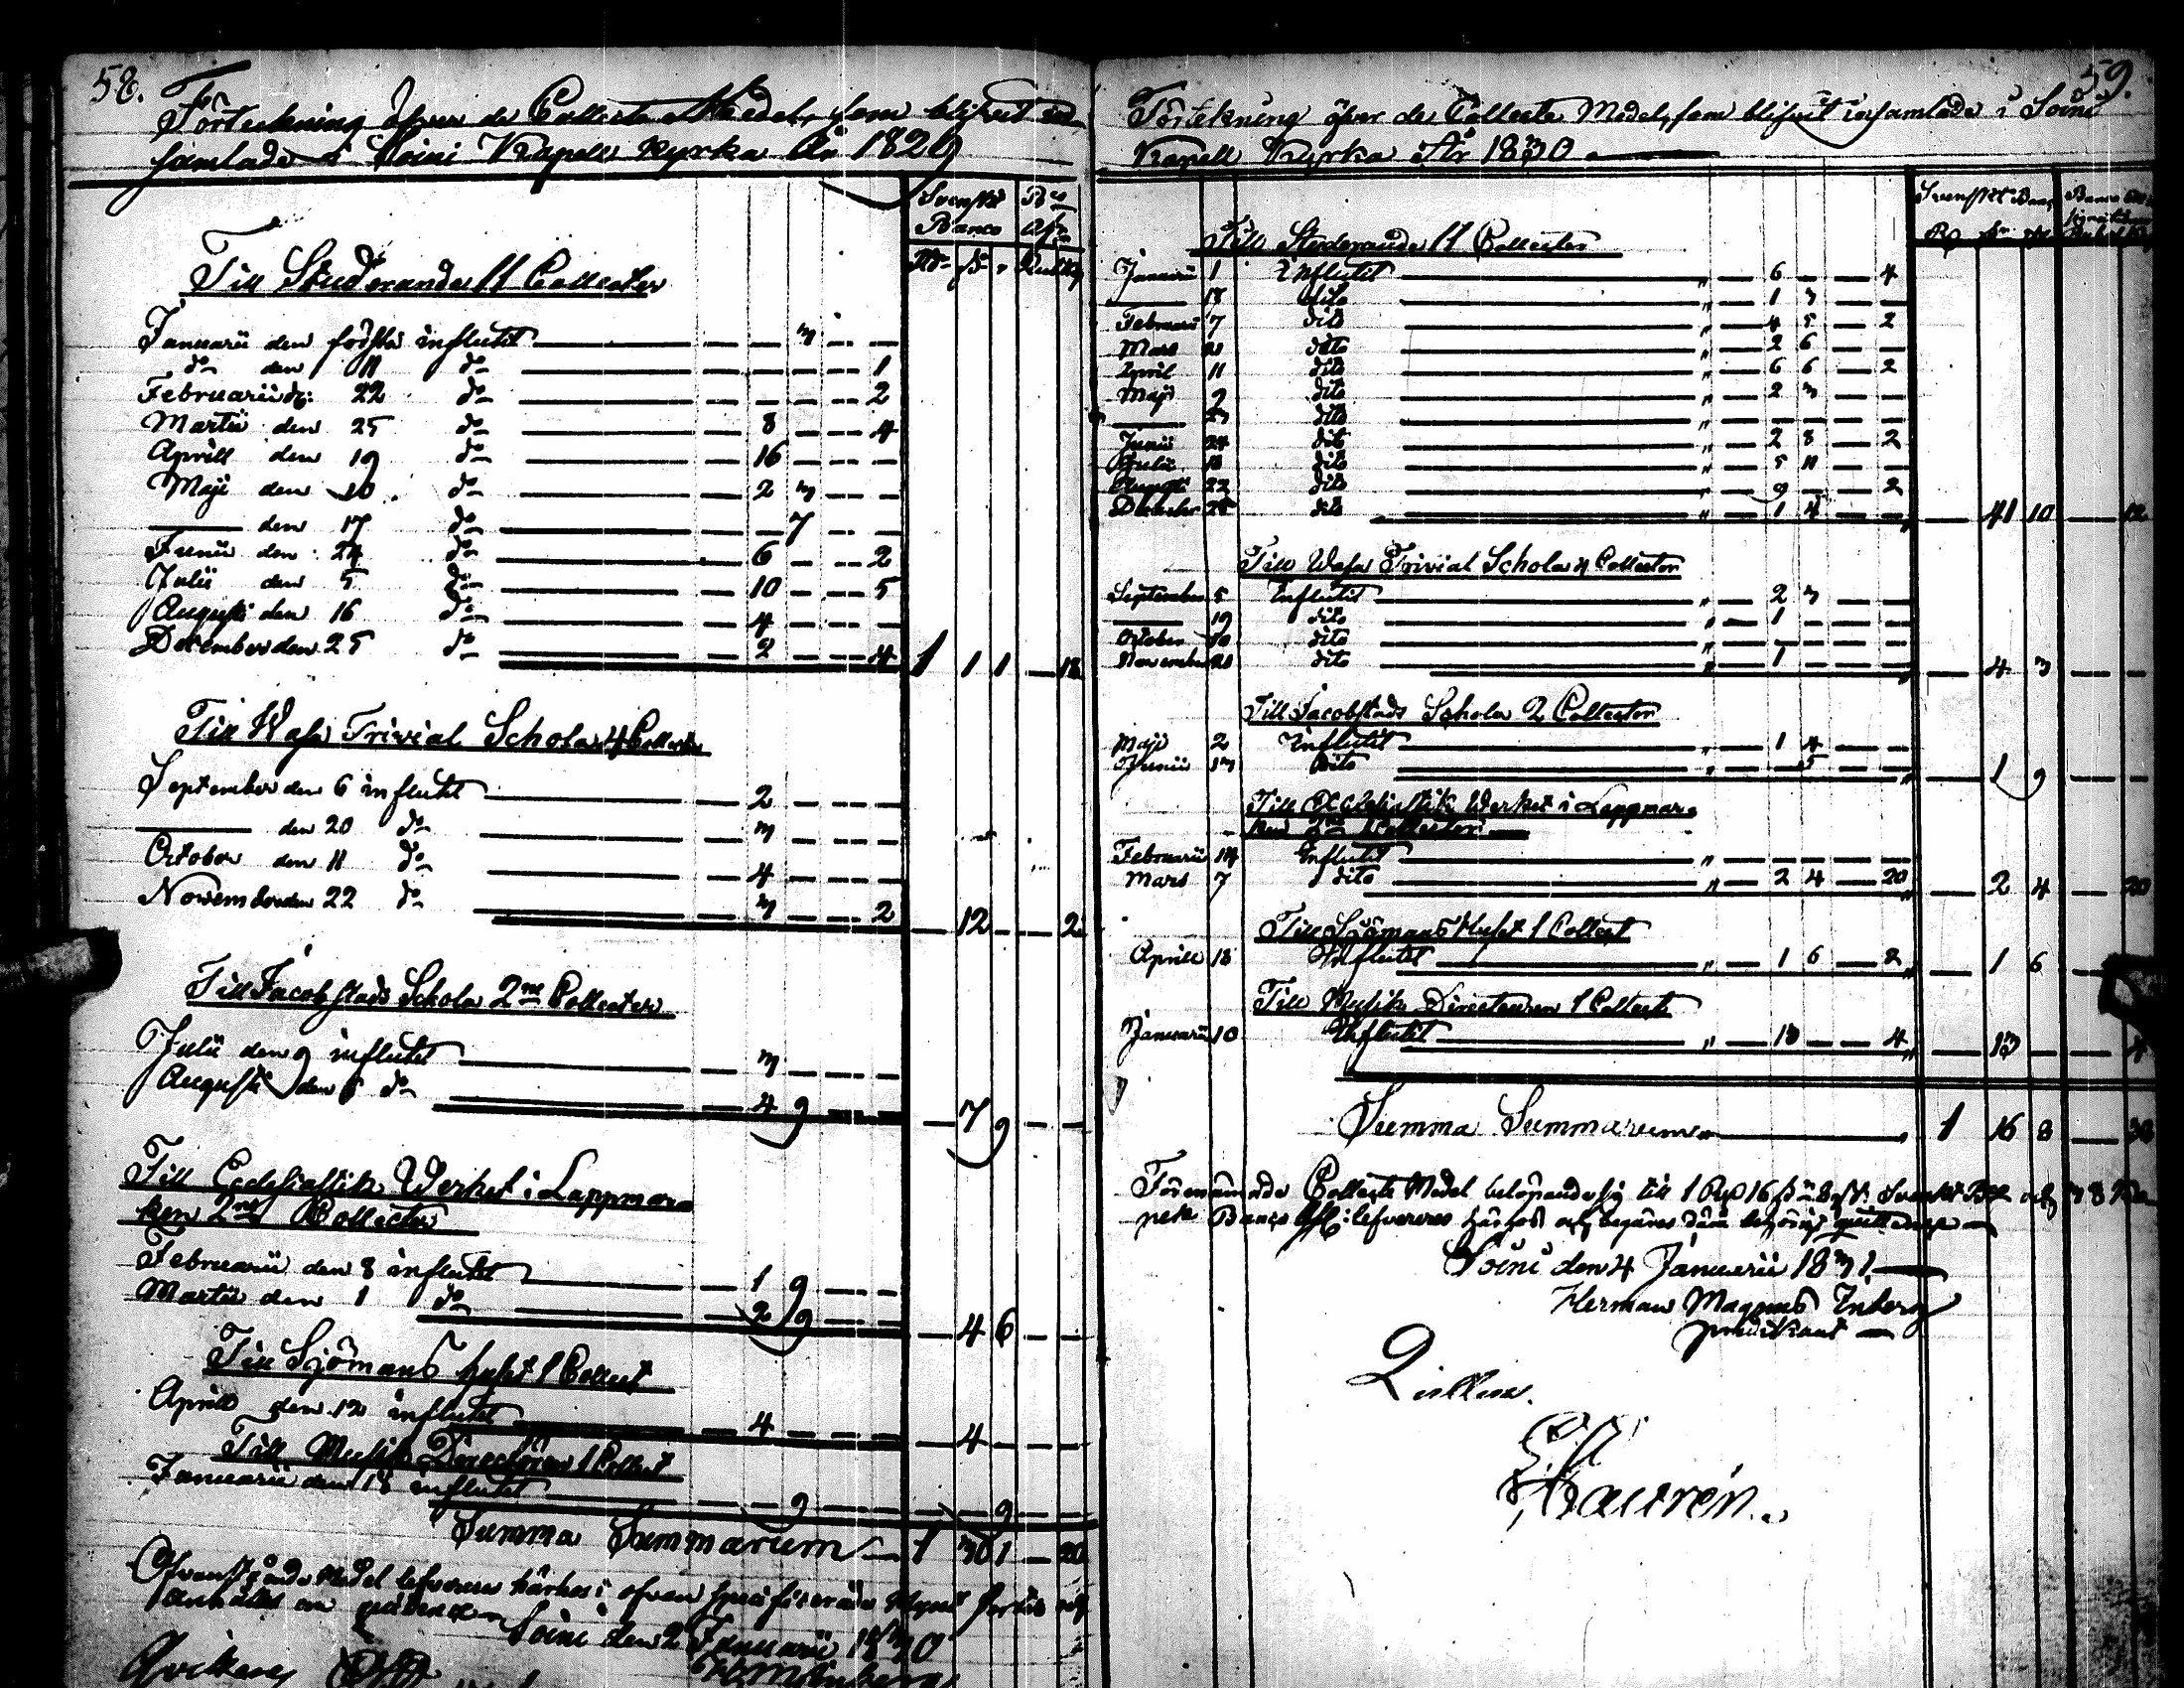 58.
Förteckning öfver de Collecte Medel, som blifvit in-
samlade i Soini Kapell Kyrka År 1829
Svenskt Banco
Rd. s. r.
Till Studerande 11 Collecter
Januarii den första influtit — — 3 — —
do den 11 do — — — — 1
Februarii d: 22 do — — — — 2
Martii den 25 do — 8 — — 4
Aprill den 19 do — 16 — — —
Maji den 10 do — 2 3 — —
— den 17 do — — 7 — —
Junii den 24 do — 6 — — 2
Julii den 5 do — 10 — — 5
Augusti den 16 do — 4 — — —
December den 25 do — 2 — — 4 1 1 1 — 18
Till Wasa Trivial Schola 4 Collecter
September den 6 influtit — 2 — — —
— den 20 do — 3 — — —
October den 11 do — 4 — — —
November den 22 do — 3 — — 2 — 12 — — 2
Till Jacobstads Schola 2ne Collecter
Julii den 9 influtit — 3 — — —
Augusti den do — 4 9 — — — 7 9 — —
Till Ecclesiastik Werket i Lappmar-
ken 2ne Collecter
Februarii den 8 influtit — 1 9 — —
Martii den 1 do — 2 9 — — — 4 6 — —
Till Sjömans huset 1 Collect
Aprill den 12 influtit — 4 — — — — 4 — — —
Till Musik Directören 1 Collect
Januarii den 18 influtit — — 9 — — — — 9 — —
Summa Summarum — 1 30 1 — 20
Ofvanstående Medel lefvereras härhos i ofvan
anhålles om
Soini den 2 Januarii 1830
59.
Förtekning öfver de Collecte Medel, som blifvit insamlade i Soini
Kapell Kyrka År 1830
Svenskt Banco
Till Studerande 11 Collecter
Januarii 1 Influtit — „ — 6 — — 4
— 18 dito — „ — 1 3 — —
Februarii 7 dito — „ — 4 5 — 2
Mars 21 dito — „ — 2 6 — —
April 11 dito — „ — 6 6 — 2
Maji 9 dito — „ — 2 3 — —
— 23 dito — „ — — — — —
Junii 24 dito — „ — 2 8 — 2
Julii 18 dito — „ — 5 11 — —
Augusti 22 dito — „ — 9 — — 2
December 25 dito — „ — 1 4 — — „ — 41 10 — 12
Till Wasa Trivial Schola 4 Collecter
September 5 Influtit — „ — 2 3 — —
— 19 dito — „ — 1 — — —
October 10 dito — „ — — — — —
November 21 dito — „ — 1 — — — „ — 4 3 — —
Till Jacobstads Schola 2 Collecter
Maji 2 Influtit — „ — 1 4 — —
Junii 13 Dito — „ — — 5 — — „ — 1 9 — —
Till Ecclesiastik Werket i Lappmar-
ken 2ne Collecter
Februarii 14 Influtit — „ — — — — —
Mars 7 dito — „ — 2 4 — 20 „ — 2 4 — 20
Till Sjömans Huset 1 Collect
Aprill 18 Influtit — „ — 1 6 — 2 „ — 1 6 —
Till Musik Directeuren 1 Collect
Januarii 10 Influtit — „ — 13 — — 4 „ — 13 — — 4
Summa Summarum — „ 1 16 8 — 38
Förenämnde Collecte Medel belöpande sig till 1 16 Svenskt
pek Banco lefvereres härhos och begäres
Soini den 4 Januarii 1831
Herman Magnus Inberg
predikant